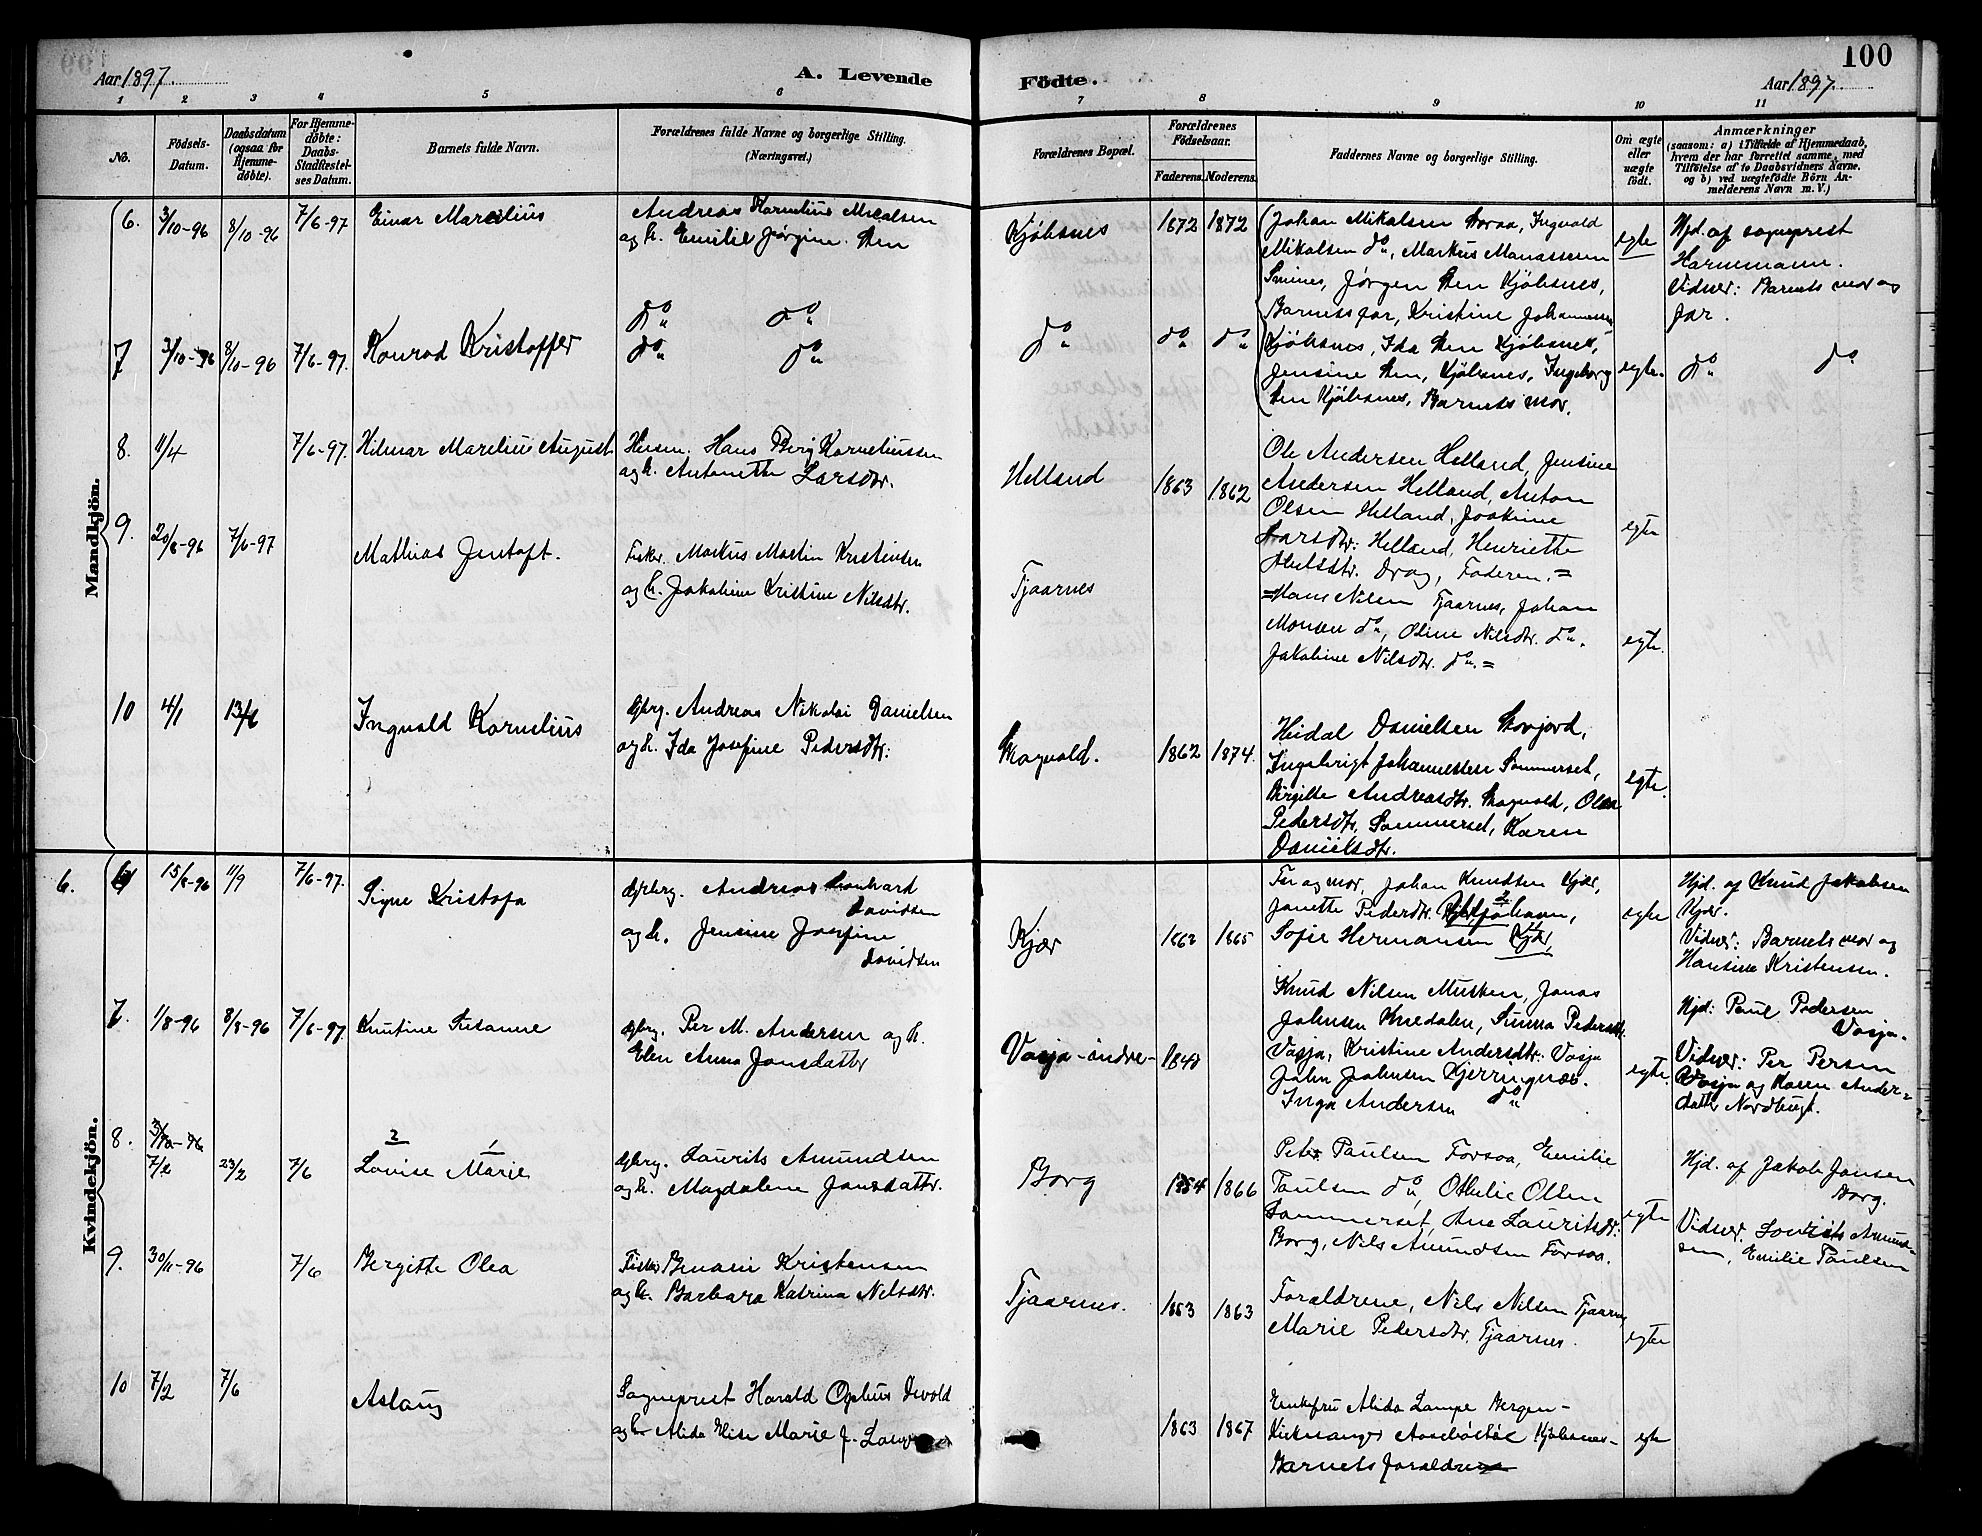 Aar 1897.
A. Levende
Födte.
100
Aar 1897.
1 2 3 4 5 6 7 8 9 10 11
No.
Födsels-
Datum.
Daabsdatum
(ogsaa for
Hjemme-
døbte).
For Hjemme-
døbte:
Daabs-
Stadfæstel-
ses Datum.
Barnets fulde Navn.
Forældrenes fulde Navne og borgerlige Stilling.
(Næringsvei.)
Forældrenes Bopæl.
Forældrenes
Fødselsaar.
Faderens. Moderens.
Faddernes Navne og borgerlige Stilling.
Om ægte
eller
uægte
født.
Anmærkninger
(saasom: a) i Tilfælde af Hjemmedaab,
hvem der har forrettet samme, med
Tilføielse af to Daabsvidners Navne.
og b) ved uægtefødte Börn An-
melderens Navn m. V.)
Mandkjön.
6. 3/10-96 8/10-96 7/6-97 Einar Marelius
Andreas Kornelius Micalsen
og h. Emilie Jørgine
Kjöbsnes 1872 1872
Johan Mikalsen Ingvald
Mikalsen do, Markus Manassesen
Jørgen Kjöbsnes,
Barnets far, Kristine Johannesen
Kjöbsnes, Ida Kjöbsnes,
Jensine Kjöbsnes, Ingeborg
Kjöbsnes, Barnets mor.
egte
Hjd. af sogneprest
Harnemann.
Vidner: Barnets mor og
far.
7 3/10-96 8/10-96 7/6-97. Konrad Kristoffer
do do
do do
do do do
egte.
do do
8. 11/4 7/6-97. Hilmar Marelius August
Husm. Hans Berg Korneliussen
og h. Antonette Larsdtr.
Helland 1863 1862
Ole Andersen Helland, Jensine
Andersen Helland, Anton
Olsen Helland, Joakime
Larsdtr. Helland, Henriette
Drag, Faderen. =
egte
9. 20/8-96 7/6-97 Mathias Jentoft.
Fisker. Markus Martin Kristensen
og h. Jakobine Kristine Nilsdtr.
Tjaarnes
= Hans Nilsen Tjaarnes, Johan
Monsen do, Oline Nilsdtr. do.
Jakobine Nilsdtr. do. =
egte.
10 4/1 13/6 Ingvald Kornelius
Gbrg. Andreas Nikolai Danielsen
og h. Ida Josefine Pedersdtr.
Skogvold. 1862 1874.
Hidal Danielsen Storjord,
Ingebrigt Johannessen Sommerset,
Birgitte Andreasdtr. Skogvold, Olea
Pedersdtr. Sommerset, Karen
Danielsdtr.
egte.
Kvindekjön.
6. 15/8-96 11/9 7/6-97. Signe Kristofa
Gbrg. Andreas Leonhard
Davidsen
og h. Jensine Josefine
Davidsen
Kjær 1862 1865
Far og mor, Johan Knudsen Kjær,
Janette Pedersdtr.
Sofie Hermansen Kjær,
egte
Hjd. af Knud Jakobsen
Kjær.
Vidner: Barnets mor og
Hansine Kristensen.
7. 1/8-96 8/8-96 7/6-97. Knutine Susanne
Gbrg. Per M. Andersen og h.
Elen Anna Jonsdatter
Vasja-indre-
Knud Nilsen Musken, Jonas
Johnsen Pedersdtr.
Vasja, Kristine Andersdtr. Vasja
John Johnsen Kjerringnæs.
Inga Andersen do
egte.
Hjd: Paul Pedersen
Vasja.
Vidner: Per Persen
Vasja og Karen Anders-
datter Nordbugt.
8. 7/2 23/2 7/6 2 1
Lovise Marie
Gbrg. Laurits Amundsen
og h. Magdalene Jonsdattr.
Borg 1854 1866
Peter Paulsen Forsaa, Emilie
Paulsen do, Othelie Olsen
Sommerset, Ane Lauritsdtr.
Borg, Nils Amundsen Forsaa.
egte
Hjd. af Jakob Jonsen
Borg.
Vidner. Lovrits Amund-
sen, Emilie Paulsen
9. 30/11-96 7/6 Bergitte Olea
Fisker Kristensen
og h. Barbara Katrina Nilsdtr.
Tjaarnes. 1863 1863
Foraldrene, Nils Nilsen Tjaarnes,
Marie Pedersdtr. Tjaarnes.
egte
10 7/2 7/6 Aslaug
Sogneprest Harald Ophus Devold
og h. Alida Elise Marie J.
1863 1867
Enkefru Alida Lampe Bergen-
Kirkesanger Kjöbsnes-
Barnets foraldre
egte